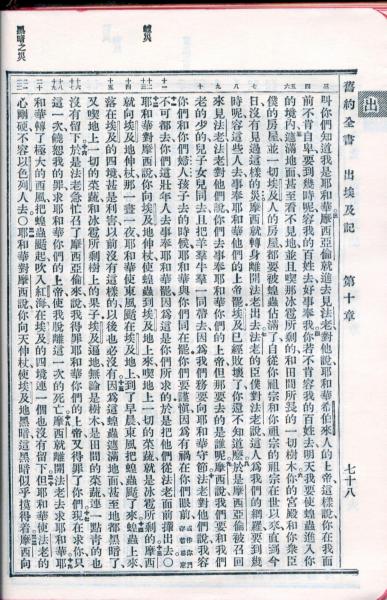 出
舊約全書 出埃及記 第十章 七十八
叫你們知道我是耶和華摩西亞倫就進去見法老對他說耶和華希伯來人的上帝這樣說你在我面
前不肯自卑要到幾時呢容我的百姓去好事奉我你若不肯容我的百姓去明天我要使蝗蟲進入你
的境內遮滿地面甚至看不見地並且喫那冰雹所剩的和田間所長的一切樹木你的宮殿和你衆臣
僕的房屋並一切埃及人的房屋都要被蝗蟲佔滿了自從你祖宗和你祖宗的祖宗在世以來直到今
日沒有見過這樣的災摩西就轉身離開法老出去法老的臣僕對法老說這人爲我們的網羅要到幾
時呢容這些人去事奉耶和華他們的上帝罷埃及已經敗壞了你還不知道麽於是摩西亞倫被召回
來見法老法老對他們說你們去事奉耶和華你們的上帝但那要去的是誰呢摩西說我們要和我們
老的少的兒子女兒同去且把羊羣牛羣一同帶去因爲我們務要向耶和華守節法老對他們說我容
你們和你們婦人孩子去的時候耶和華與你們同在罷你們要謹愼因爲有禍在你們眼前或作你們存着惡意
不可都去你們這壯年人去事奉耶和華罷因爲這是你們所求的於是把他們從法老面前攆出去○
耶和華對摩西說你向埃及地伸杖使蝗蟲到埃及地上來喫地上一切的菜蔬就是冰雹所剩的摩西
就向埃及地伸杖那一晝一夜耶和華使東風颳在埃及地上到了早晨東風把蝗蟲颳了來蝗蟲上來
落在埃及的四境甚是利害以前沒有這樣的以後也必沒有因爲這蝗蟲遮滿地面甚至地都黑暗了
又喫地上一切的菜蔬和冰雹所剩樹上的果子埃及遍地無論是樹木是田間的菜蔬連一點青的也
沒有留下於是法老急忙召了摩西亞倫來說我得罪耶和華你們的上帝又得罪了你們現在求你只
這一次饒恕我的罪求耶和華你們的上帝使我脫離這一次的死亡摩西就離開法老去求耶和華耶
和華轉了極大的西風把蝗蟲颳起吹入紅海在埃及的四境連一個也沒有留下但耶和華使法老的
心剛硬不容以色列人去○耶和華對摩西說你向天伸杖使埃及地黑暗這黑暗似乎摸得着摩西向
蝗災
黑暗之災